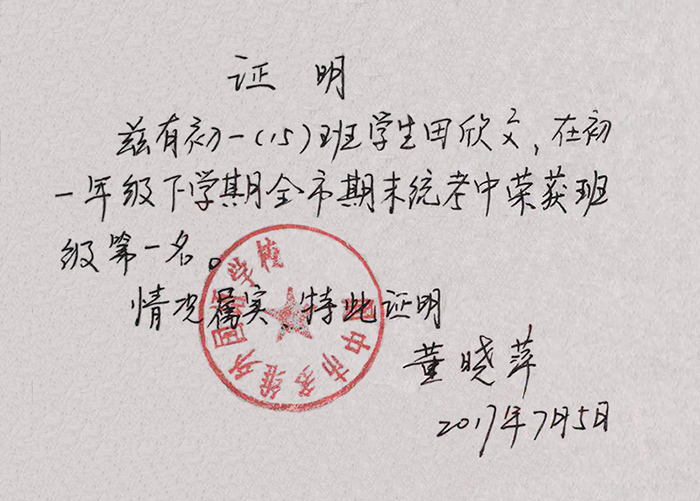 证 明
兹有初一(15)班学生田欣文,在初
一年级下学期全市期末统考中荣获班
级第一名。
情况属实、特此证明
董晓萍
2017年7月5日
阆中市多维外国语学校